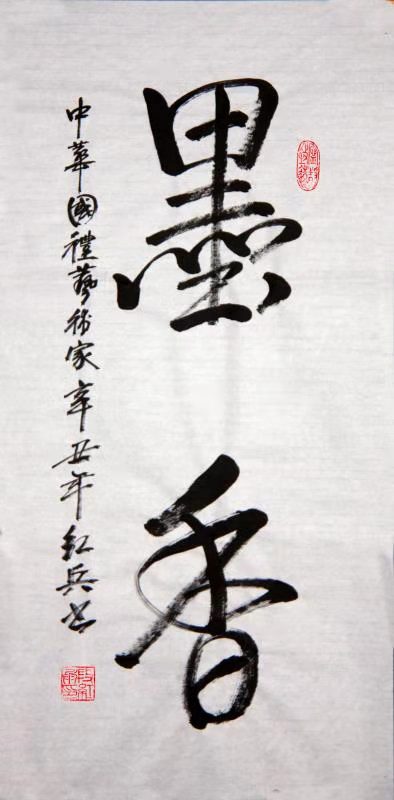 墨香
中華國禮藝術家辛丑年紅兵書